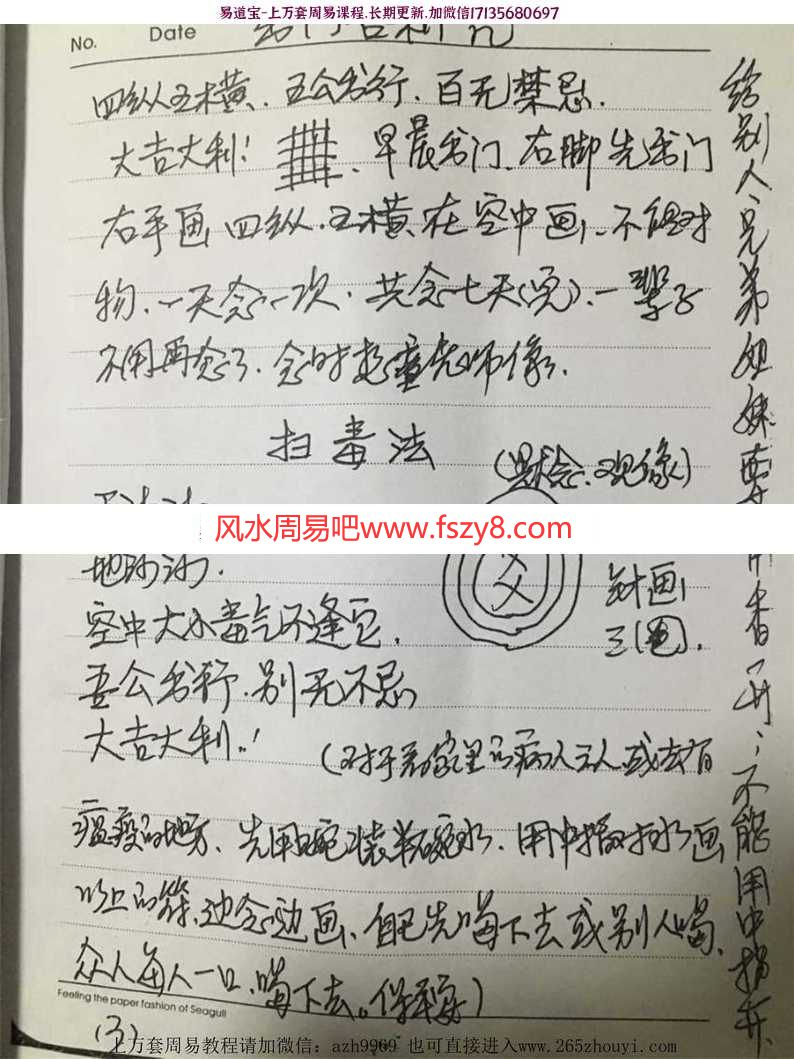 易道宝-上万套周易课程.长期更新.加微信17135680697
No. Date
出门吉利咒
四纵五横、五公出行、百无禁忌.
大吉大利! 早晨出门、右脚先出门
右手画四纵、五横、在空中画、不能对
物、一天念一次、共念七天(完)、一辈子
不用再念了、念时想童老师像、
扫毒法
(默念、观像)
风水周易吧www.fszy8.com
空中大小毒气不逢它,
吾公出行、别无不忌,
大吉大利!
画
三(圈).
(对于家里的病人 或去有
瘟疫的地方、先用碗装半碗水、用中指 水画
以上的符、边念边画、自己先喝下去或别人喝、
众人每人一口、喝下去。保平安)
给别人、兄弟姐妹 香 不能用中指
Feeling the paper fashion of Seagull
(3)
上万套周易教程请加微信: azh9969 也可直接进入www.265zhouyi.com